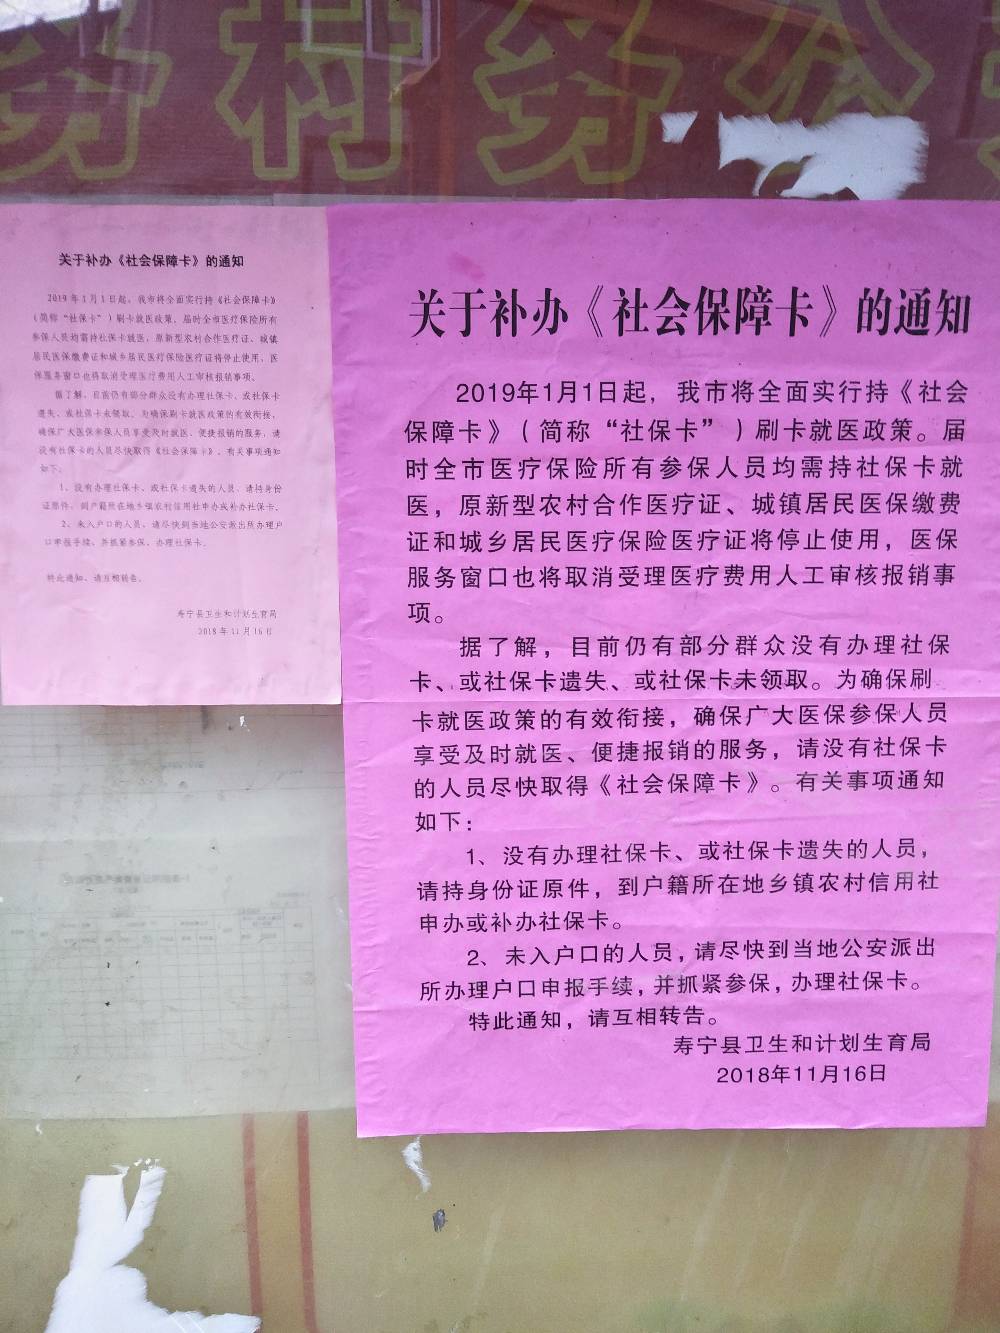 务 村务公
关于补办《社会保障卡》的通知
2019年1月1日起，我市将全面实行持《社会保障卡》
（简称“社保卡”）刷卡就医政策，届时全市医疗保险所有
参保人员均需持社保卡就医，原新型农村合作医疗证、城镇
居民医保缴费证和城乡居民医疗保险医疗证将停止使用，医
保服务窗口也将取消受理医疗费用人工审核报销事项。
据了解，目前仍有部分群众没有办理社保卡、或社保卡
遗失、或社保卡未领取。为确保刷卡就医政策的有效衔接，
确保广大医保参保人员享受及时就医、便捷报销的服务，请
没有社保卡的人员尽快取得《社会保障卡》。有关事项通知
如下：
1、没有办理社保卡、或社保卡遗失的人员，请持身份
证原件，到户籍所在地乡镇农村信用社申办或补办社保卡。
2、未入户口的人员，请尽快到当地公安派出所办理户
口申报手续，并抓紧参保，办理社保卡。
特此通知，请互相转告。
寿宁县卫生和计划生育局
2018年11月16日
关于补办《社会保障卡》的通知
2019年1月1日起，我市将全面实行持《社会
保障卡》（简称“社保卡”）刷卡就医政策。届
时全市医疗保险所有参保人员均需持社保卡就
医，原新型农村合作医疗证、城镇居民医保缴费
证和城乡居民医疗保险医疗证将停止使用，医保
服务窗口也将取消受理医疗费用人工审核报销事
项。
据了解，目前仍有部分群众没有办理社保
卡、或社保卡遗失、或社保卡未领取。为确保刷
卡就医政策的有效衔接，确保广大医保参保人员
享受及时就医、便捷报销的服务，请没有社保卡
的人员尽快取得《社会保障卡》。有关事项通知
如下：
1、没有办理社保卡、或社保卡遗失的人员，
请持身份证原件，到户籍所在地乡镇农村信用社
申办或补办社保卡。
2、未入户口的人员，请尽快到当地公安派出
所办理户口申报手续，并抓紧参保，办理社保卡。
特此通知，请互相转告。
寿宁县卫生和计划生育局
2018年11月16日